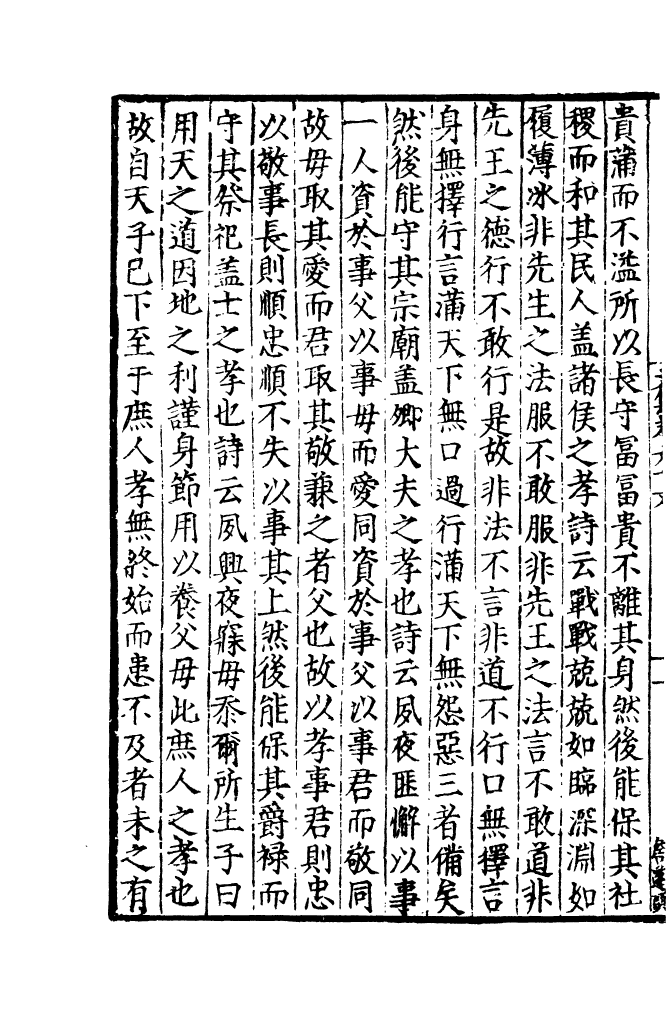 貴蒲而不溢所以長守冨冨貴不離其身然後能保其社
稷而和其民人盖諸侯之孝詩云戰戰兢兢如臨深淵如
履薄冰非先生之法服不敢服非先王之法言不敢道非
先王之徳行不敢行是故非法不言非道不行口無擇言
身無擇行言蒲天下無口過行滿天下無怨惡三者備矣
然後能守其宗廟盖卿大夫之孝也詩云夙夜匪懈以事
一人資於事父以事毋而愛同資於事父以事君而敬同
故毋取其愛而君取其敬蒹之者父也故以孝事君則忠
以敬事長則順忠順不失以事其上然後能保其爵禄而
守其祭祀盖士之孝也詩云夙興夜寐毋忝爾所生子曰
用天之道因地之利謹身節用以養父毋此庶人之孝也
故自天子已下至于庶人孝無終始而患不及者未之有